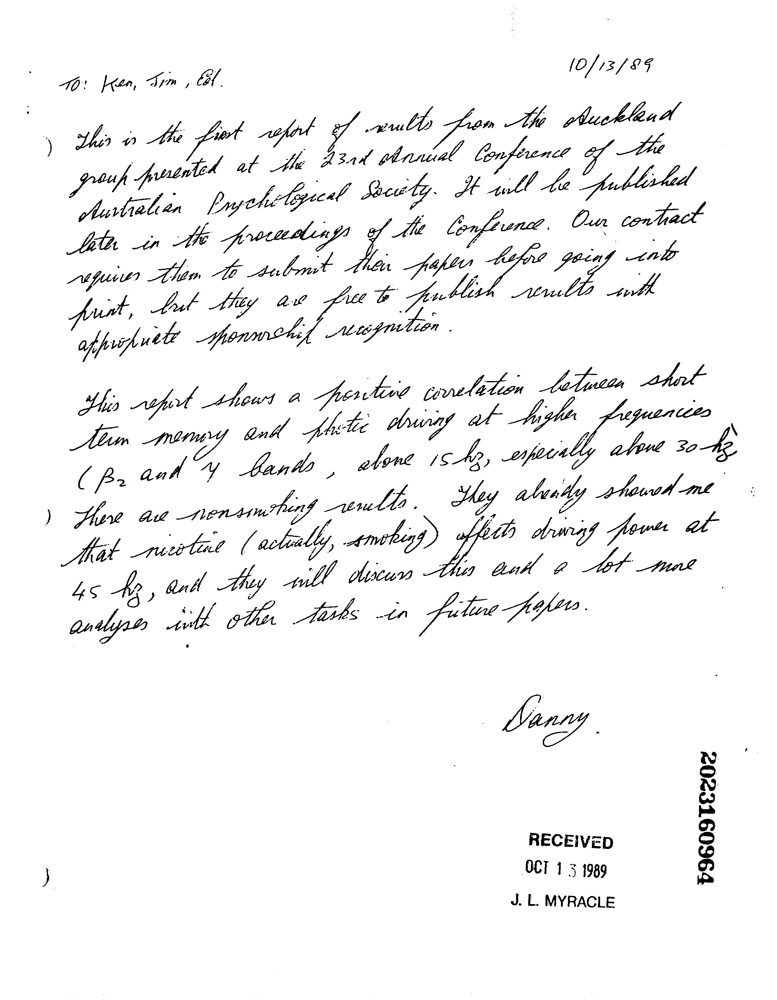 10/13/89
To: Ken, Jim, Ed.
This is the first report of results from the Auckland
group presented at the 23rd Annual Conference of the
Australian Psychological Society. It will be published
later in the proceedings of the Conference. Our contract
requires them to submit their papers before going into
print, but they are free to publish results with
appropriate sponsorship recognition.
This report shows a positive correlation between short
term memory and photic driving at higher frequencies
(β2 and γ bands, above 15 hz, especially above 30 hz)
These are nonsmoking results. They already showed me
that nicotine (actually, smoking) affects driving power at
45 hz, and they will discuss this and a lot more
analyses with other tasks in future papers.
Danny.
2023160964
RECEIVED
OCT 13 1989
J. L. MYRACLE